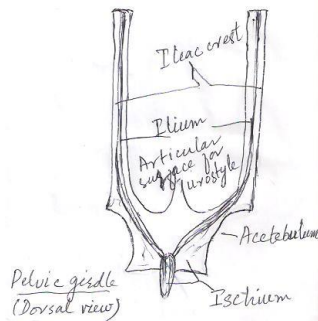 Ileac crest
Ilium
Articular
surface for
urostyle
Acetebulum
Ischium
Pelvic girdle
(Dorsal view)